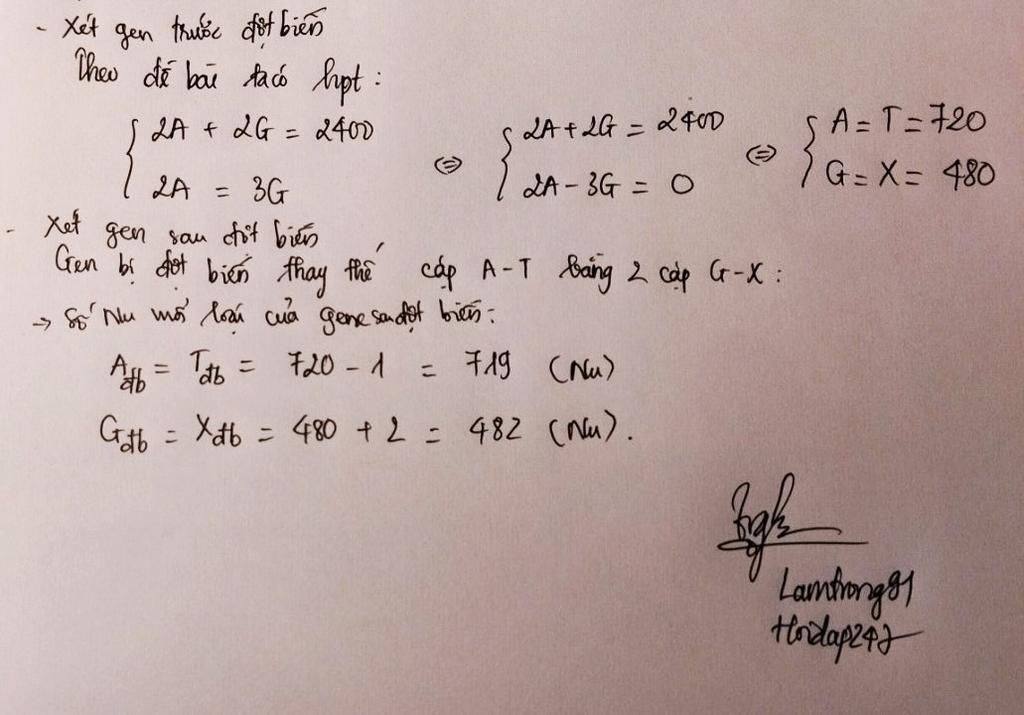 - Xét gen trước đột biến
Theo đề bài ta có hpt:
{ 2A + 2G = 2400 ⇔ { 2A + 2G = 2400 ⇔ { A = T = 720
2A = 3G 2A - 3G = 0 G = X = 480
- Xét gen sau đột biến
Gen bị đột biến thay thế cặp A-T bằng 2 cặp G-X:
→ Số Nu mỗi loại của gene sau đột biến:
Ađb = Tđb = 720 - 1 = 719 (Nu)
Gđb = Xđb = 480 + 2 = 482 (Nu).
Lamtrong91
Hoidap247